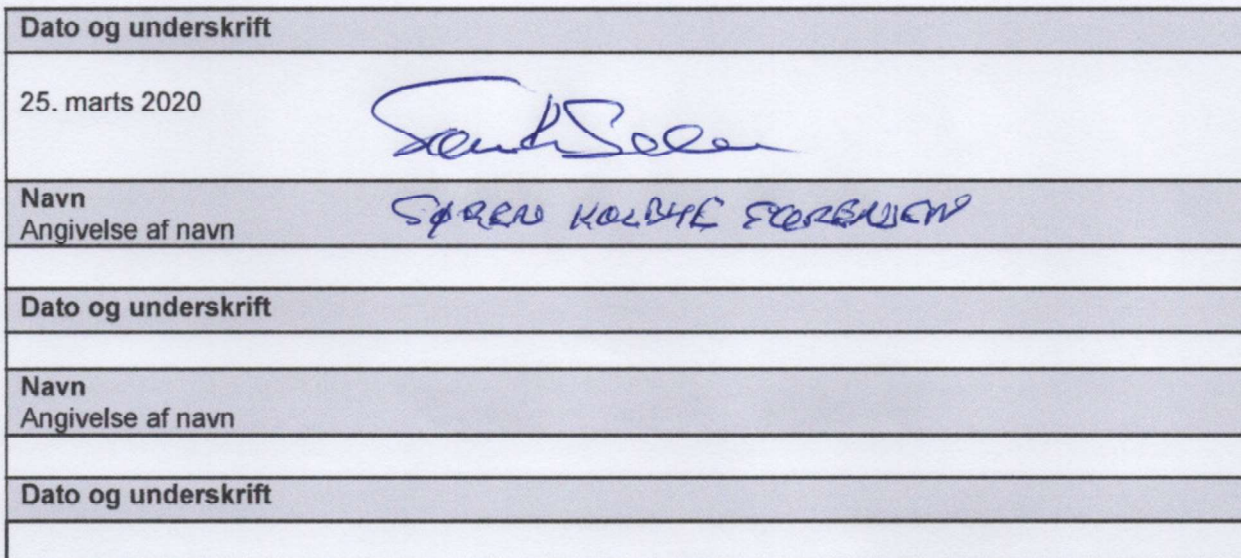 Dato og underskrift
25. marts 2020
Navn
Angivelse af navn
SØREN KOLBYE SØRENSEN
Dato og underskrift
Navn
Angivelse af navn
Dato og underskrift